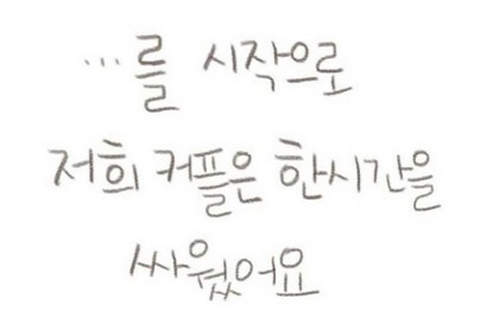 ...를 시작으로
저희 커플은 한시간을
싸웠어요